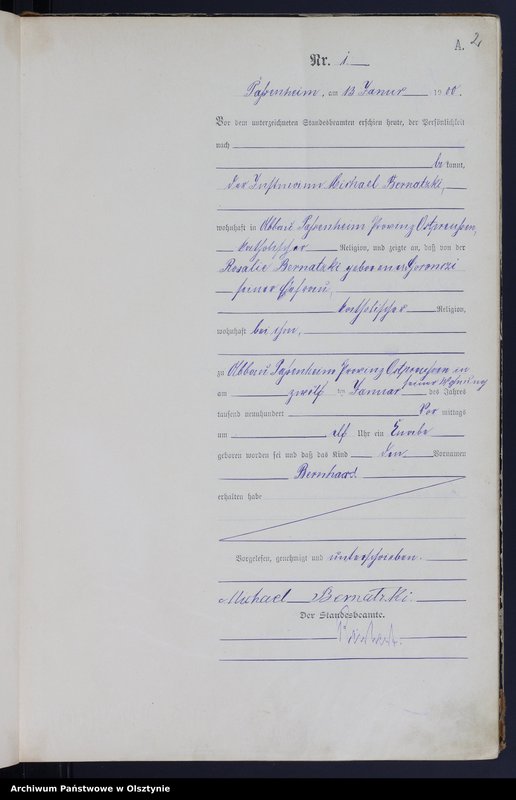 A. 2
Nr. 1
Passenheim, am 13 Januar 1900.
Vor dem unterzeichneten Standesbeamten erschien heute, der Persönlichkeit
nach
bekannt,
der Instmann Michael Bernatzki,
wohnhaft in Abbau Passenheim Provinz Ostpreußen,
katholischer Religion, und zeigte an, daß von der
Rosalie Bernatzki geborenen
seiner Ehefrau,
katholischer Religion,
wohnhaft bei ihm,
zu Abbau Passenheim Provinz Ostpreußen in
seiner Wohnung
am zwölf ten Januar des Jahres
tausend neunhundert Vor mittags
um elf Uhr ein Knabe
geboren worden sei und daß das Kind den Vornamen
Bernhard
erhalten habe
Vorgelesen, genehmigt und unterschrieben.
Michael Bernatzki
Der Standesbeamte.
Archiwum Państwowe w Olsztynie